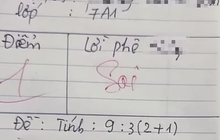 lớp : 7A1
Điểm Lời phê
1 Sai
Đề : Tính : 9 : 3(2+1)